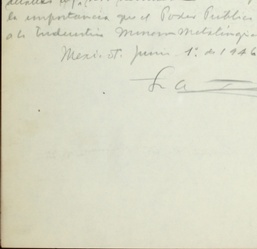 la importancia que el Poder Publico
a la Industria Minero Metalúrgica
Mexico D.F. Junio 1º de 1946